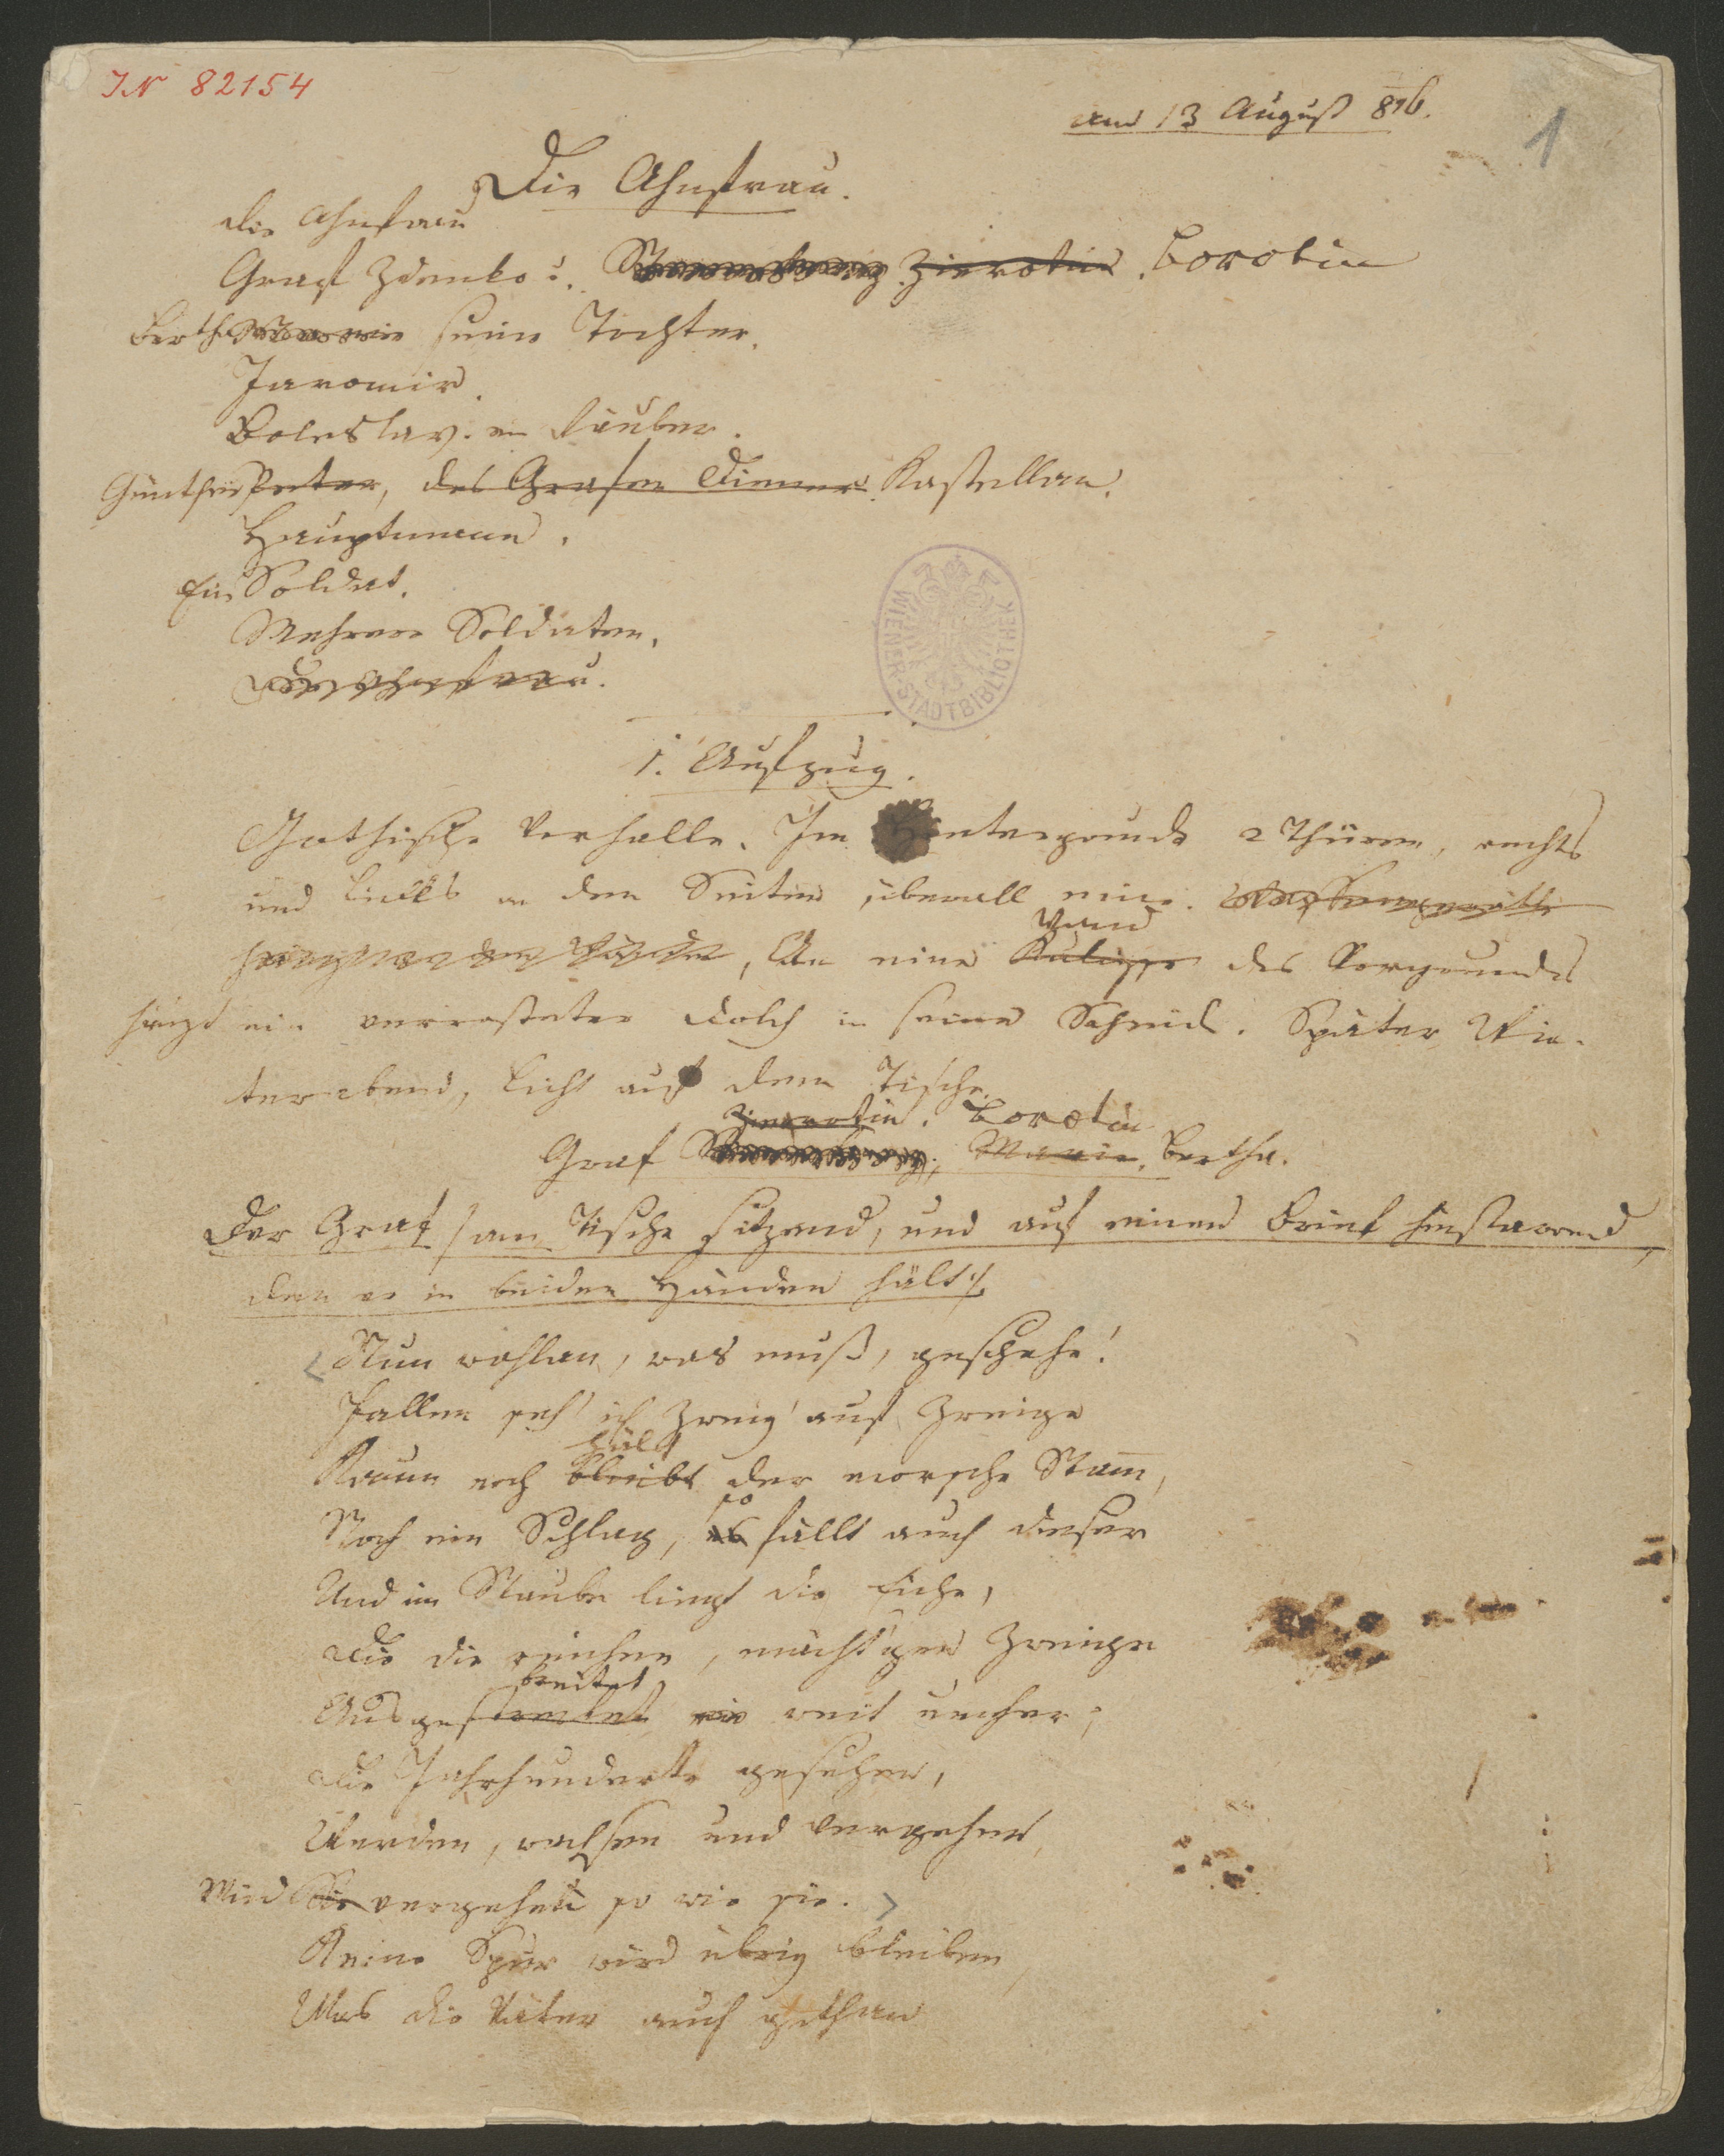 JN 82154
am 13 August 816.
1
Die Ahnfrau.
die Ahnfrau
Graf Zdenko v. Zierotin. Borotin
Bertha Marie seine Tochter.
Jaromir.
Boleslav. ein Räuber.
Günther Peter, des Grafen Diener. Kastellan.
Hauptmann.
Ein Soldat.
Mehrere Soldaten.
Die Ahnfrau.
WIENER-STADTBIBLIOTHEK
1. Aufzug.
Gothische Vorhalle. Im Hintergrunde 2 Thüren, rechts
und links an den Seiten überall eine.
Wand
, An eine Kulisse des Vorgrundes
hängt ein verrosteter Dolch in seiner Scheide. Später Win-
terabend, Licht auf dem Tische.
Zierotin. Borotin
Graf Marie. Bertha.
Der Graf /am Tische sitzend, und auf einen Brief hinstarrend,
den er in beiden Händen hält/.
Nun wohlan, was muß, geschehe!
Fallen seh' ich Zweig' auf Zweige
hält
Kaum noch bleibt der morsche Stam̅,
so
Noch ein Schlag, es fällt auch dieser
Und im Staube liegt die Eiche,
Die die reichen, mächt'gen Zweige
breitet
Ausgestrecket weit umher;
Die Jahrhunderte gesehen,
Werden, wachsen und vergehen,
Wird Sie vergehen so wie sie.
Keine Spur wird übrig bleiben,
Was die Väter auch gethan